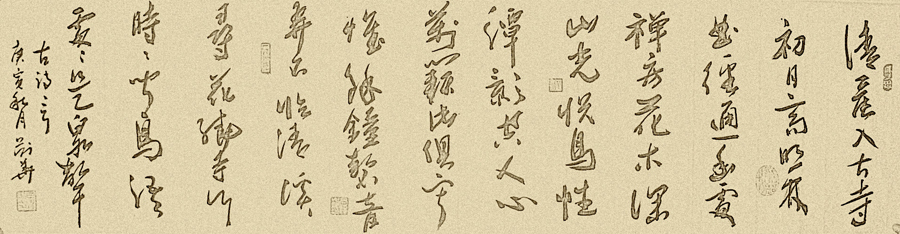 清晨入古寺
初日高林
曲徑通幽處
禅房花木深
山光悦鳥性
潭影空人心
萬籟此俱寂
惟餘鐘磬音
弄石临清溪
尋花繞寺行
時時聞鳥語
處處是泉聲
古詩二首
庚寅秋月